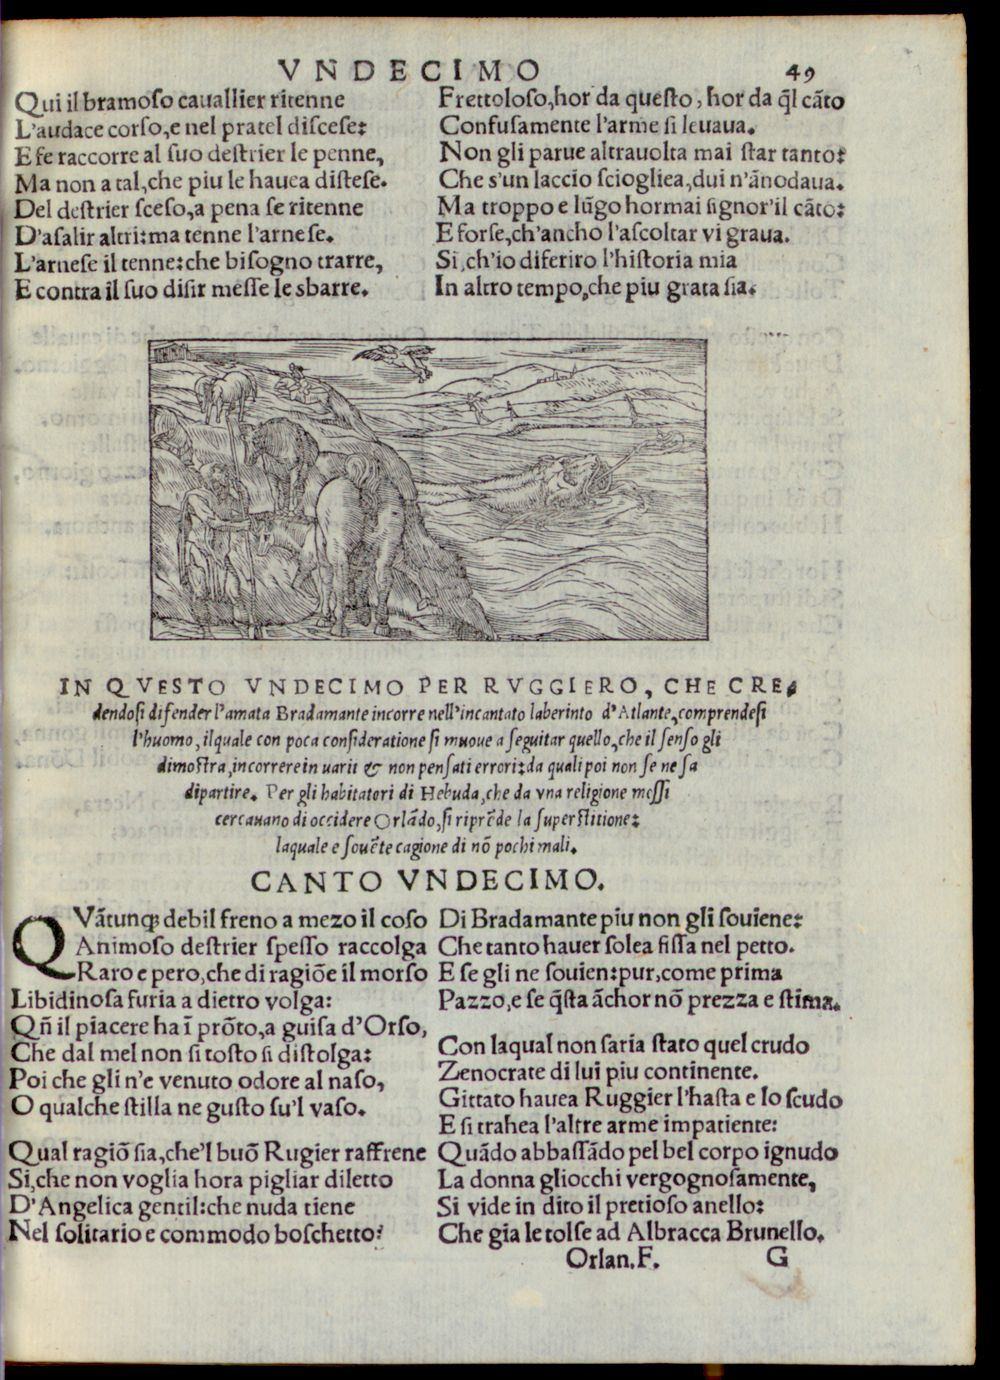 VNDECIMO 49
Qui il bramoso cauallier ritenne
L'audace corso, e nel pratel discese:
E fe raccorre al suo destrier le penne,
Ma non a tal, che piu le hauea distese.
Del destrier sceso, a pena se ritenne
D'asalir altri: ma tenne l'arnese.
L'arnese il tenne: che bisogno trarre,
E contra il suo disir messe le sbarre.
Frettoloso, hor da questo, hor da q̃l cāto
Confusamente l'arme si leuaua.
Non gli parue altrauolta mai star tanto:
Che s'un laccio sciogliea, dui n'ānodaua.
Ma troppo e lūgo hormai signor'il cāto:
E forse, ch'ancho l'ascoltar vi graua.
Si, ch'io diferiro l'historia mia
In altro tempo, che piu grata sia.
IN QVESTO VNDECIMO PER RVGGIERO, CHE CRE-
dendosi difender l'amata Bradamante incorre nell'incantato laberinto d'Atlante, comprendesi
l'huomo, ilquale con poca consideratione si muoue a seguitar quello, che il senso gli
dimostra, incorrere in uarii & non pensati errori: da quali poi non se ne sa
dipartire. Per gli habitatori di Hebuda, che da vna religione messi
cercauano di occidere Orlādo, si riprēde la superstitione:
laquale e souēte cagione di nō pochi mali.
CANTO VNDECIMO.
QVātunq; debil freno a mezo il coso
Animoso destrier spesso raccolga
Raro e pero, che di ragiōe il morso
Libidinosa furia a dietro volga:
Qñ il piacere ha ī prōto, a guisa d'Orso,
Che dal mel non si tosto si distolga:
Poi che gli n'e venuto odore al naso,
O qualche stilla ne gusto su'l vaso.
Qual ragiō sia, che'l buō Rugier raffrene
Si, che non voglia hora pigliar diletto
D'Angelica gentil: che nuda tiene
Nel solitario e commodo boschetto?
Di Bradamante piu non gli souiene:
Che tanto hauer solea fissa nel petto.
E se gli ne souien: pur, come prima
Pazzo, e se q̃sta āchor nō prezza e stima.
Con laqual non saria stato quel crudo
Zenocrate di lui piu continente.
Gittato hauea Ruggier l'hasta e lo scudo
E si trahea l'altre arme impatiente:
Quādo abbassādo pel bel corpo ignudo
La donna gliocchi vergognosamente,
Si vide in dito il pretioso anello:
Che gia le tolse ad Albracca Brunello.
Orlan. F. G